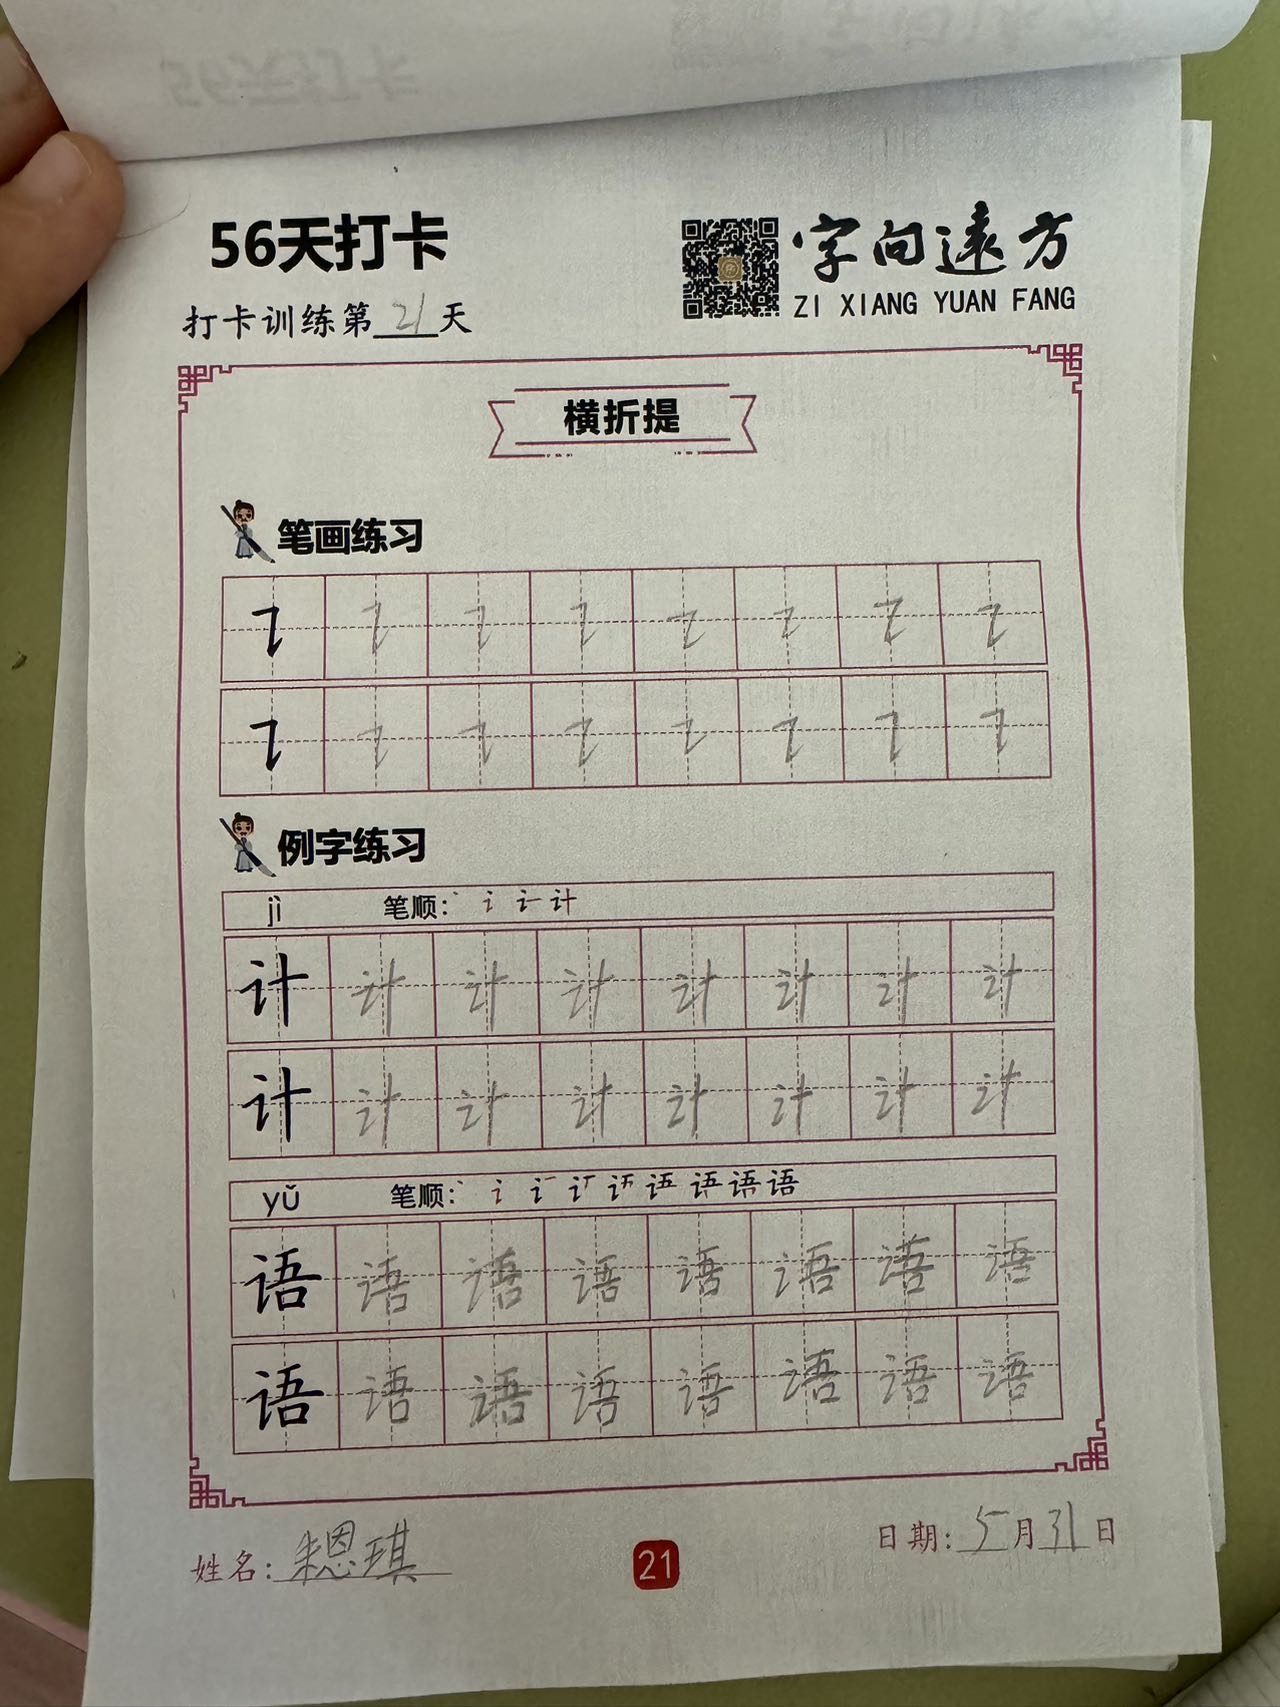 56天打卡
字向遠方
ZI XIANG YUAN FANG
打卡训练第21天
横折提
笔画练习
例字练习
jì 笔顺：
计 计 计 计 计 计 计 计
计 计 计 计 计 计 计 计
yǔ 笔顺：
语 语 语 语 语 语 语 语
语 语 语 语 语 语 语 语
姓名：朱恩琪
21
日期：5月31日